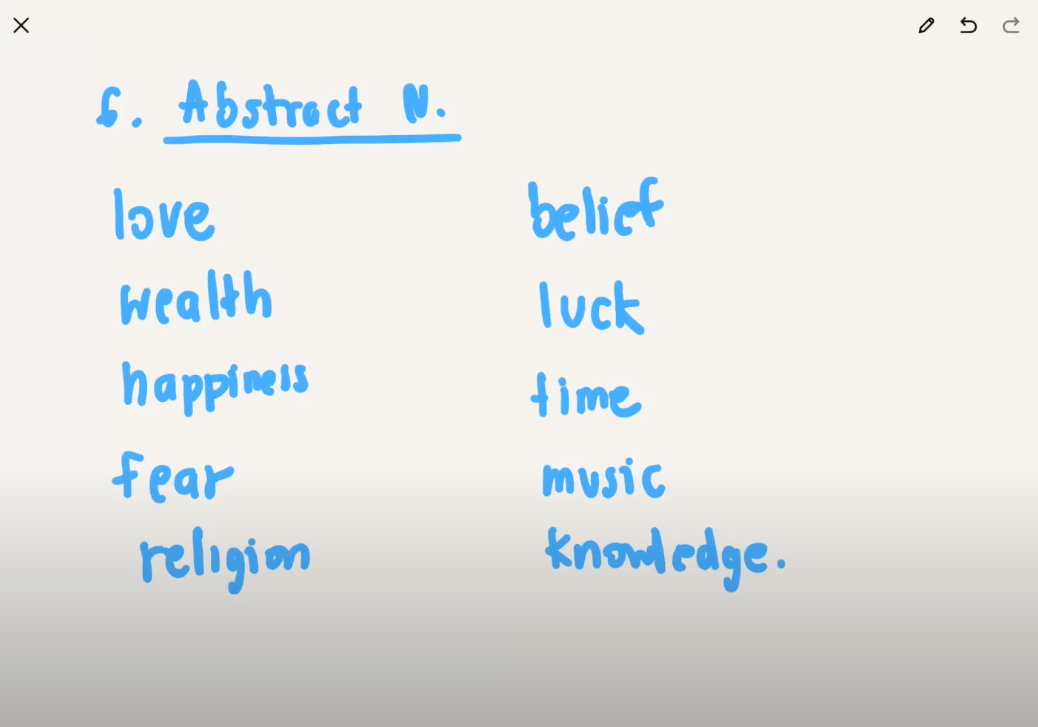 6. Abstract N.
love
wealth
happiness
fear
religion
belief
luck
time
music
knowledge.